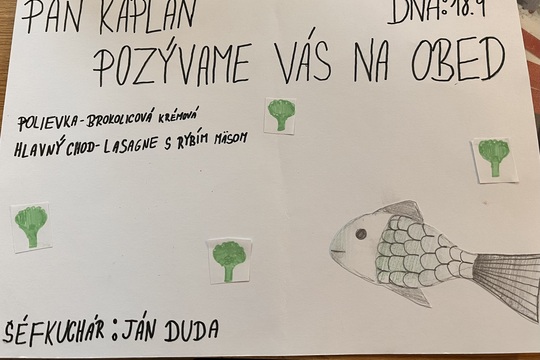 PÁN KAPLÁN
DŇA: 18.9
POZÝVAME VÁS NA OBED
POLIEVKA-BROKOLICOVÁ KRÉMOVÁ
HLAVNÝ CHOD-LASAGNE S RYBÍM MÄSOM
ŠÉFKUCHÁR: JÁN DUDA